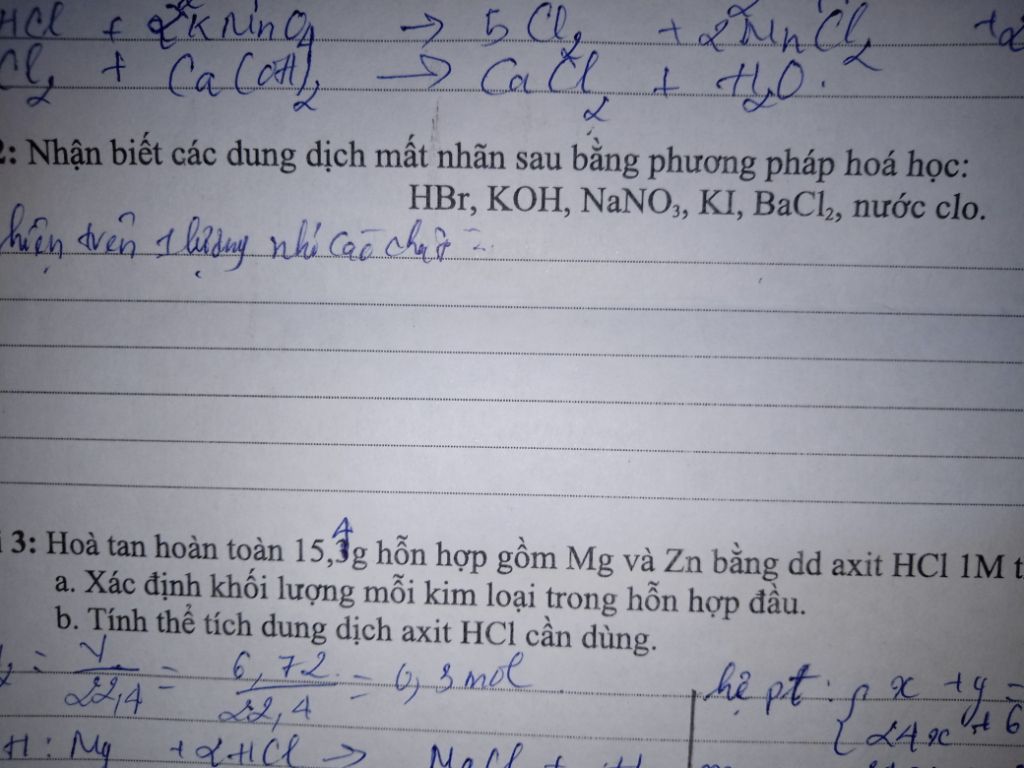 HCl + 2KMnO4 → 5Cl2 + 2MnCl2 +2
Cl2 + Ca(OH)2 → CaCl2 + H2O.
2: Nhận biết các dung dịch mất nhãn sau bằng phương pháp hoá học:
HBr, KOH, NaNO3, KI, BaCl2, nước clo.
hiện trên 1 lượng nhỏ các chất :
i 3: Hoà tan hoàn toàn 15,4g hỗn hợp gồm Mg và Zn bằng dd axit HCl 1M t
a. Xác định khối lượng mỗi kim loại trong hỗn hợp đầu.
b. Tính thể tích dung dịch axit HCl cần dùng.
= V/22,4 = 6,72/22,4 = 0,3 mol
hệ pt : { x + y =
24x + 6
H : Mg + 2HCl →